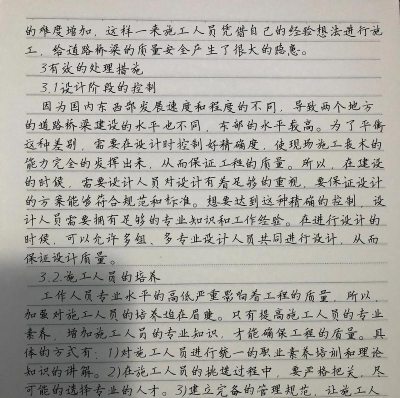 的难度增加，这样一来施工人员凭借自己的经验想法进行施
工，给道路桥梁的质量安全产生了很大的隐患。
3有效的处理措施
3.1设计阶段的控制
因为国内东西部发展速度和程度的不同，导致两个地方
的道路桥梁建设的水平也不同，东部的水平较高。为了平衡
这种差别，需要在设计时控制好精确度，使现场施工技术的
能力完全的发挥出来，从而保证工程的质量。所以，在建设
的时候，需要设计人员对设计有着足够的重视，要保证设计
的方案能够符合规范和标准。想要达到这种精确的控制，设
计人员需要拥有足够的专业知识和工作经验。在进行设计的
时候，可以允许多组、多专业设计人员共同进行设计，从而
保证设计质量。
3.2.施工人员的培养
工作人员专业水平的高低严重影响着工程的质量，所以，
加强对施工人员的培养迫在眉睫。只有提高施工人员的专业
素养，增加施工人员的专业知识，才能确保工程的质量。具
体的方式有：1)对施工人员进行统一的职业素养培训和理论
知识的讲解。2)在施工人员的挑选过程中，要严格把关，尽
可能的选择专业的人才。3)建立完备的管理规范，让施工人